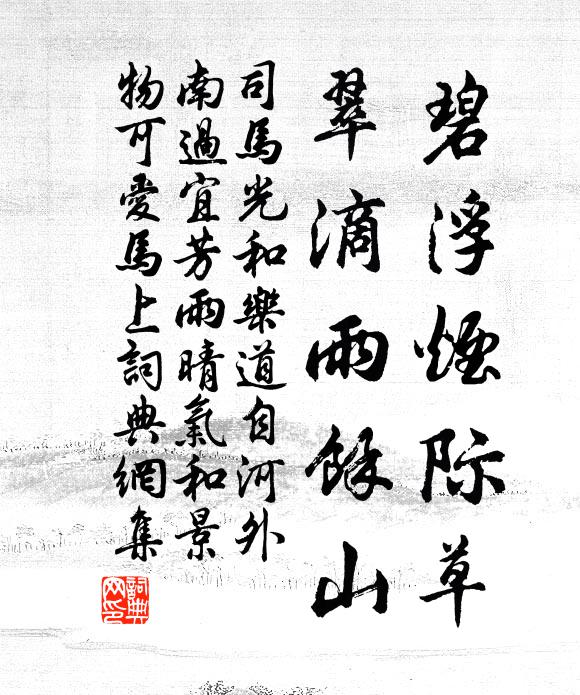 碧浮煙际草
翠滴雨餘山
司馬光和樂道自河外
南過宜芳雨晴氣和景
物可愛馬上詞典網集
詞典
网印